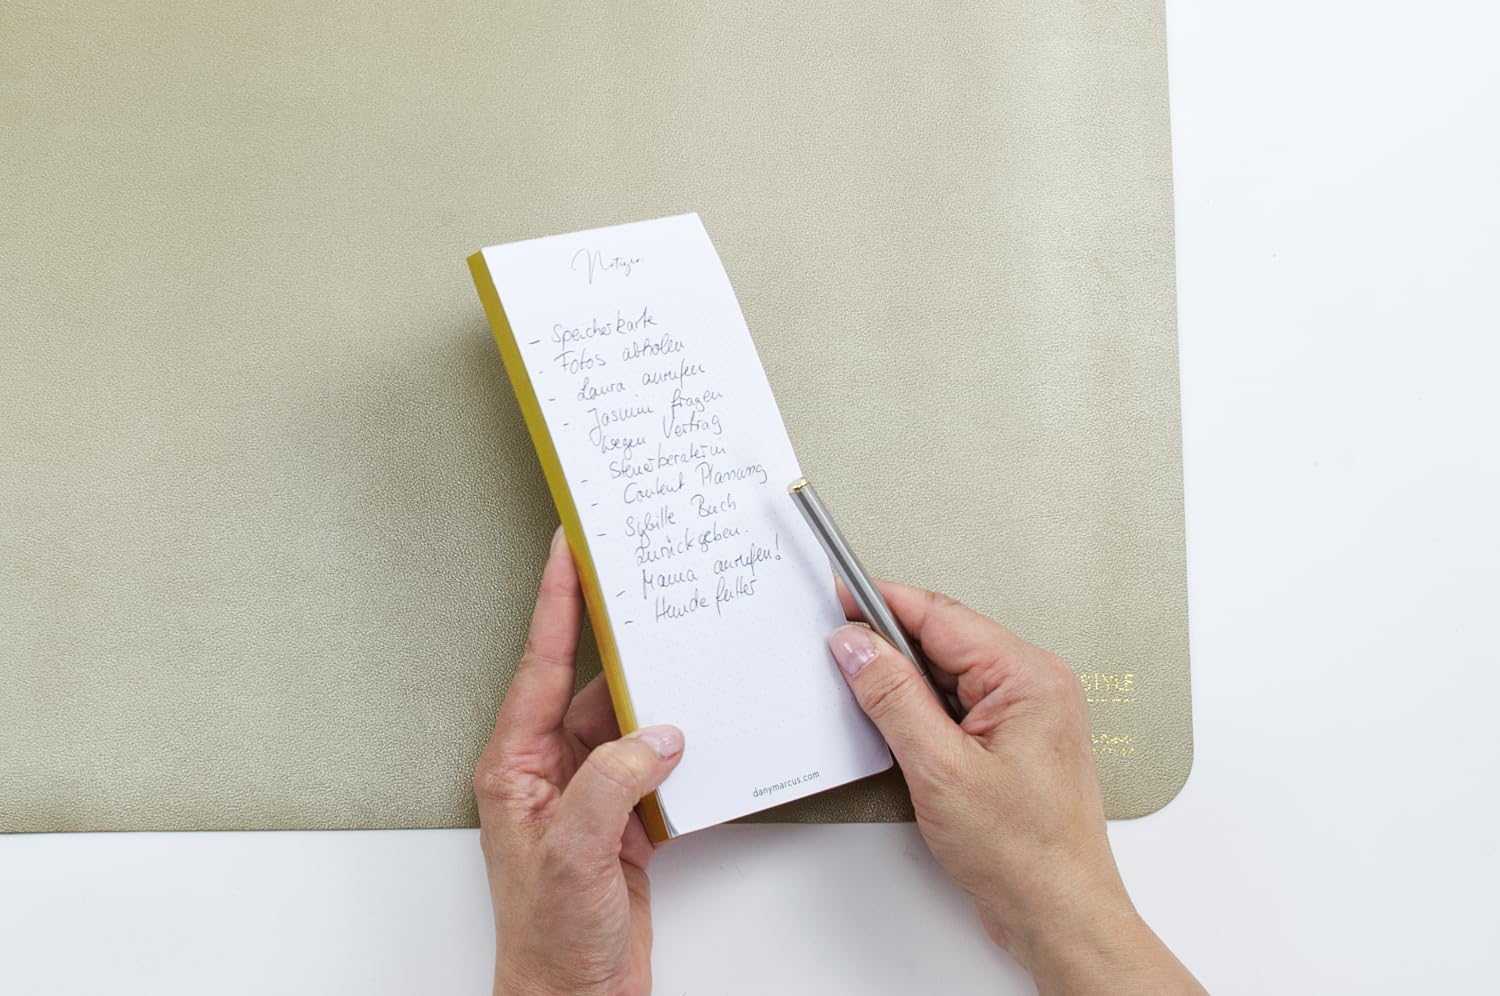 Notizen
- Speicherkarte
- Fotos abholen
- Laura anrufen
- Jasmin fragen
wegen Vertrag
- Steuerberaterin
- Content Planung
- Sybille Buch
zurückgeben.
- Mama anrufen!
- Hunde futter
danymarcus.com
STYLE